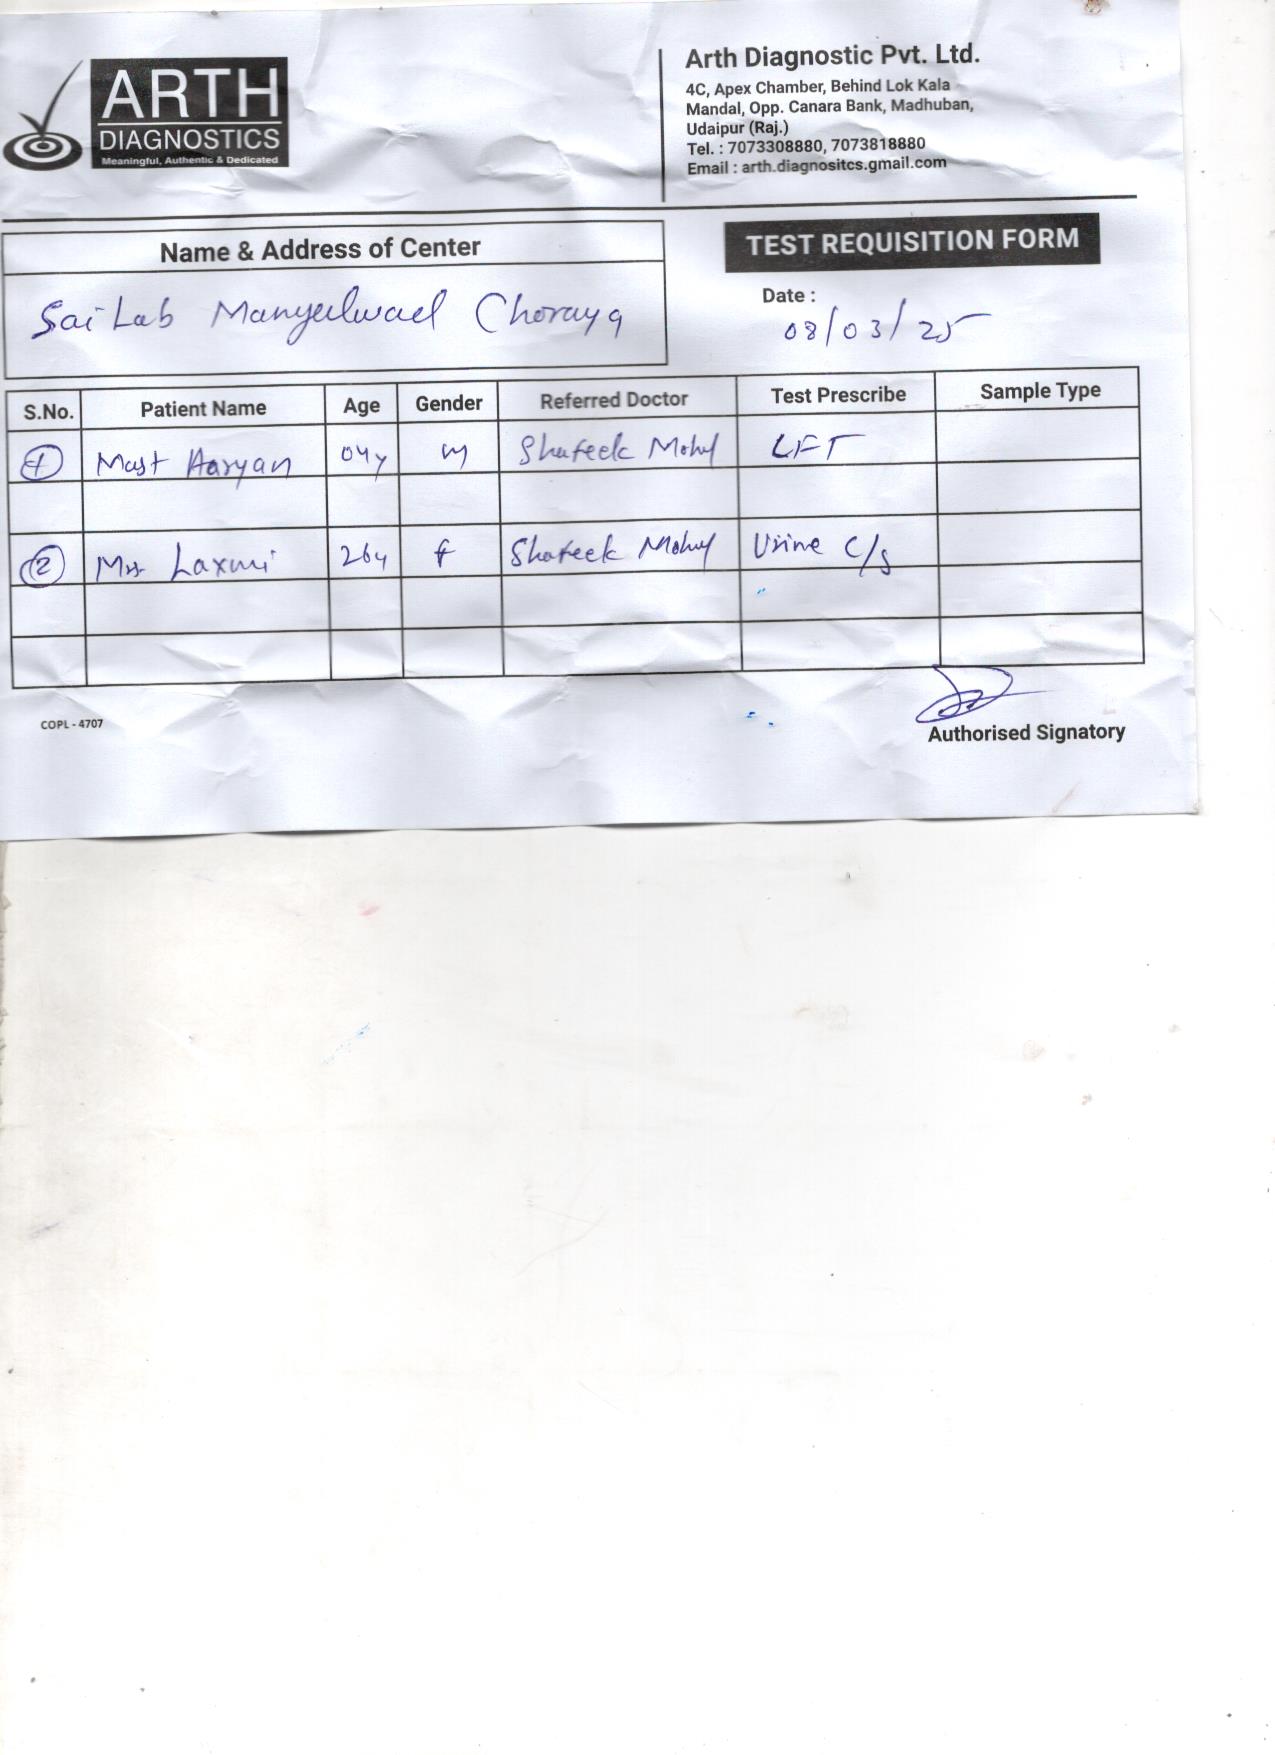 ARTH
DIAGNOSTICS
Meaningful, Authentic & Dedicated
Arth Diagnostic Pvt. Ltd.
4C, Apex Chamber, Behind Lok Kala
Mandal, Opp. Canara Bank, Madhuban,
Udaipur (Raj.)
Tel. : 7073308880, 7073818880
Email : arth.diagnositcs.gmail.com
Name & Address of Center
TEST REQUISITION FORM
Sai Lab Choraya
Date :
08/03/25
S.No. Patient Name Age Gender Referred Doctor Test Prescribe Sample Type
1 Mast Aaryan 04y M Shafeek Mohd LFT
2 Mrs Laxmi 26y F Shafeek Mohd Urine C/s
COPL - 4707
Authorised Signatory